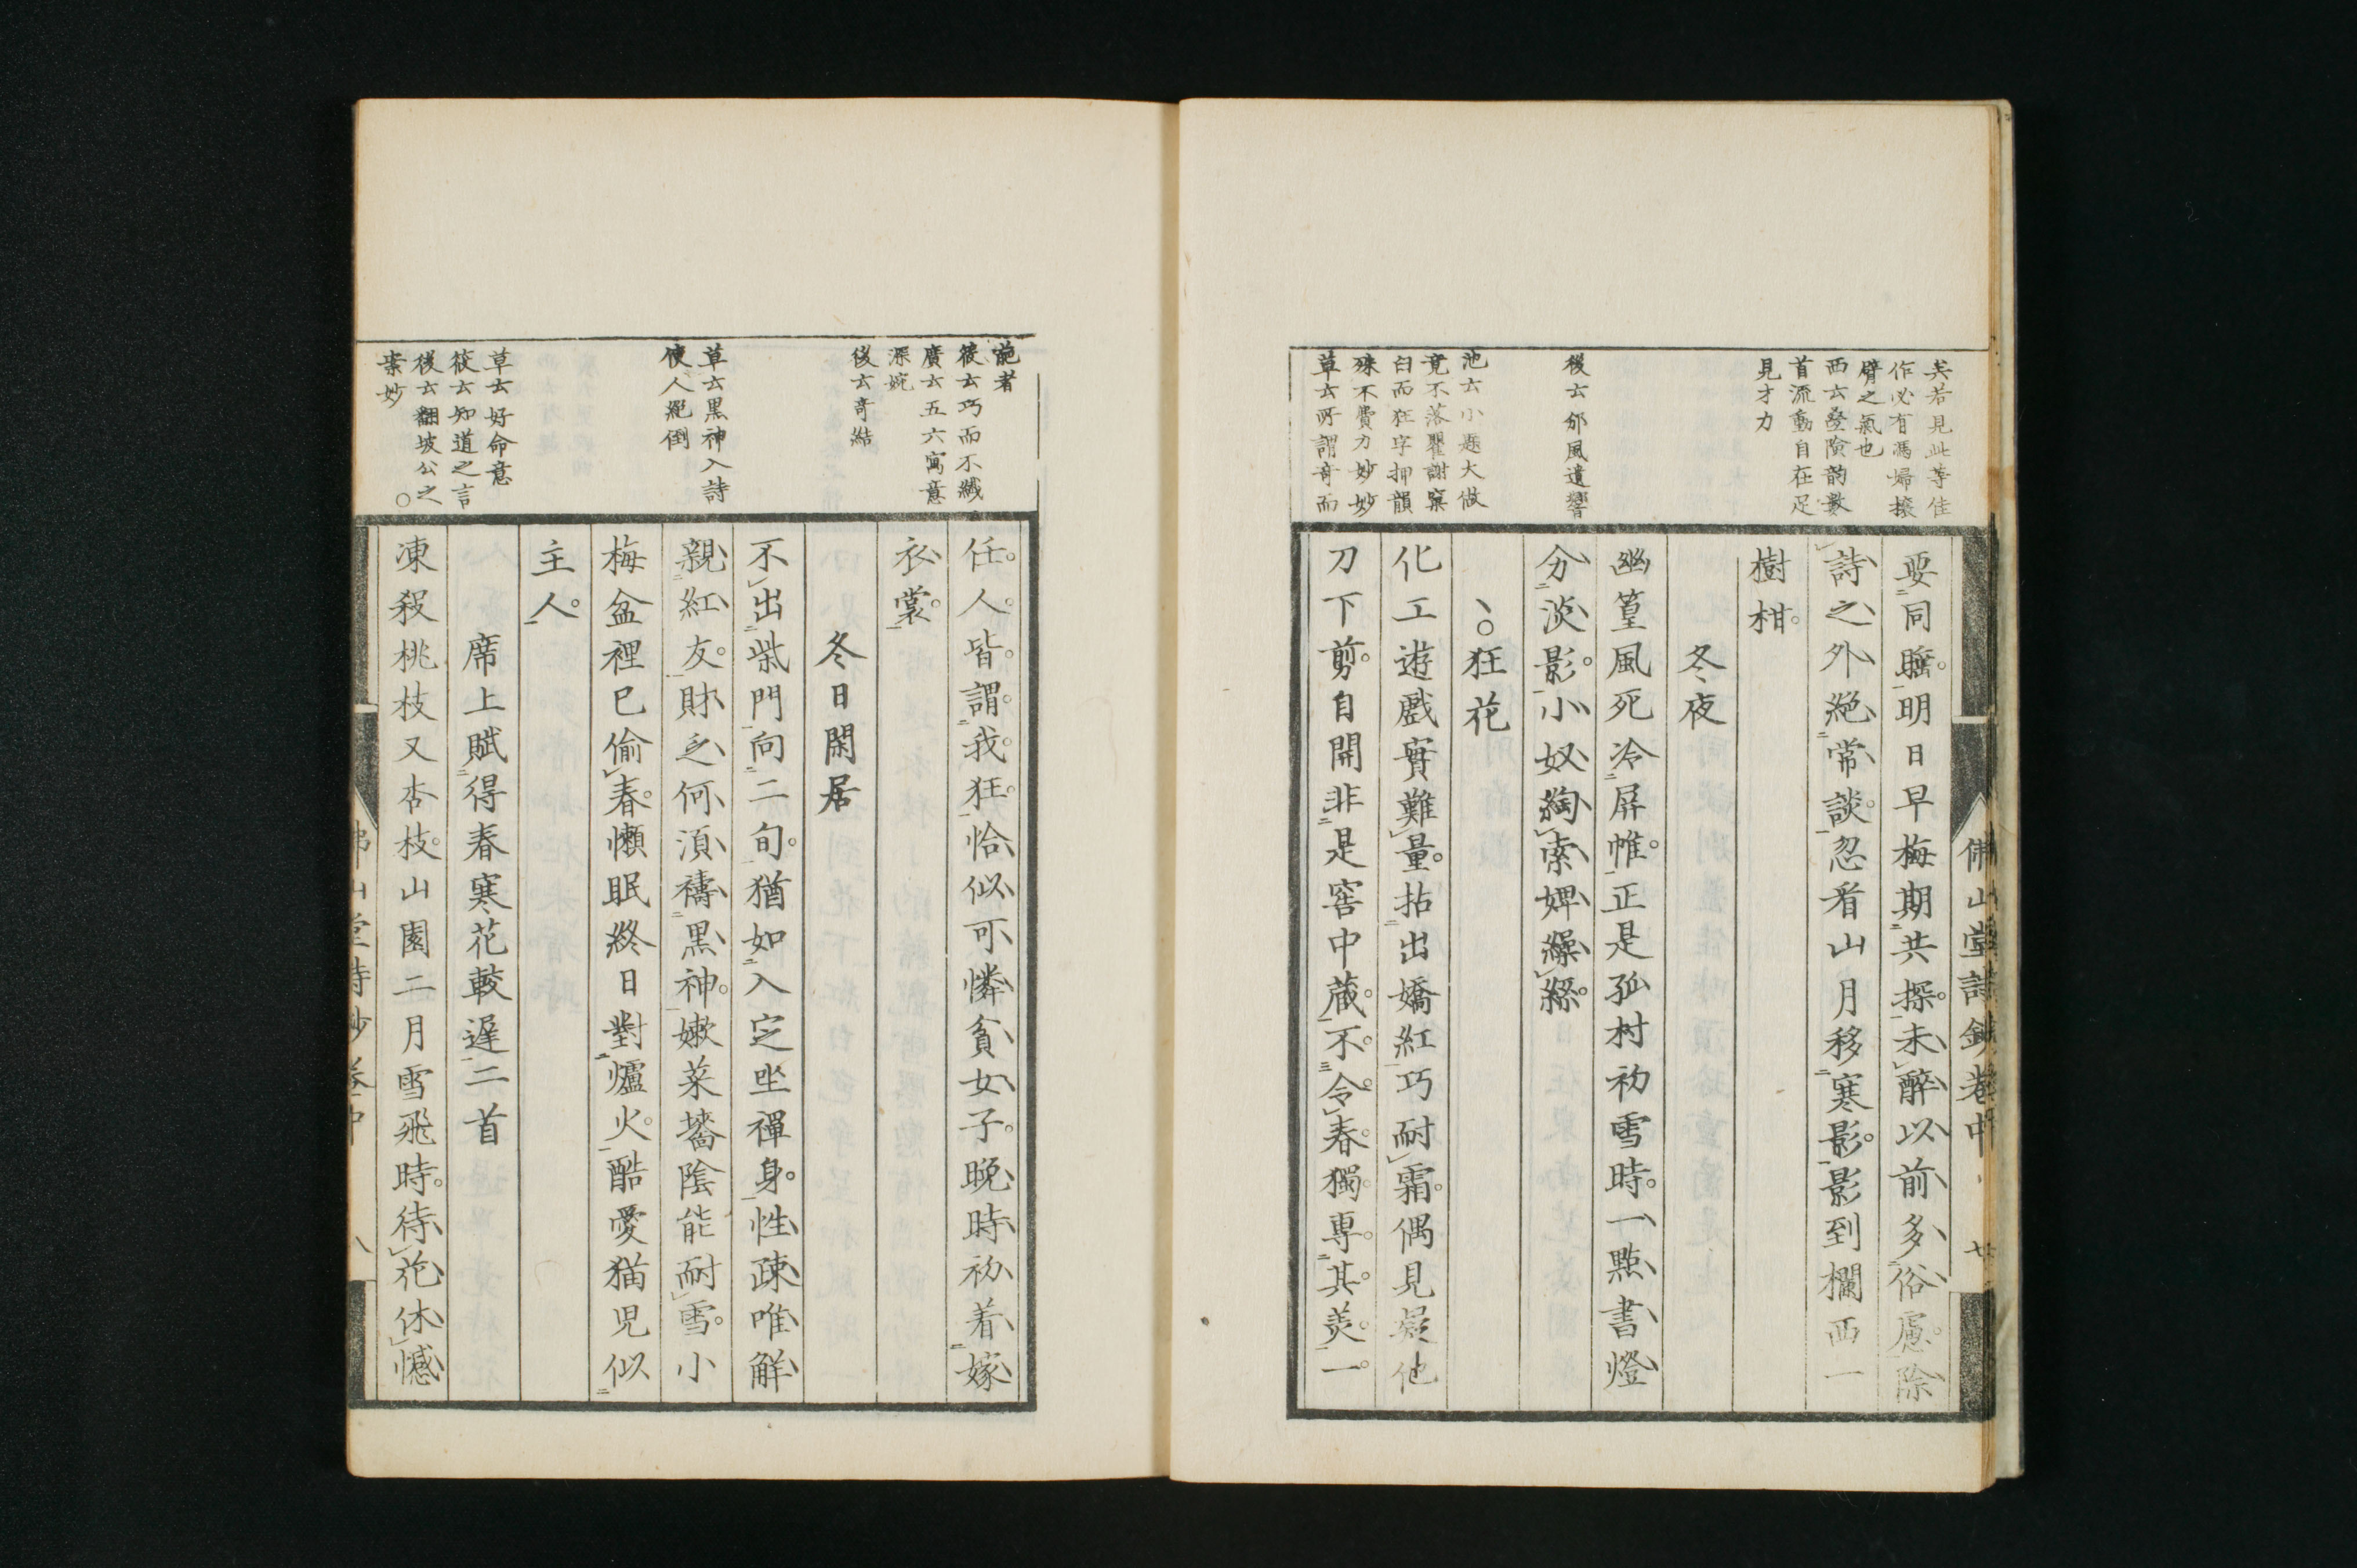 矣若見此等佳
作必有馮婦攘
臂之氣也
西云疊險韵數
首流動自在足
見才力
後云邠風遺響
池云小題大做
竟不落瞿謝窠
臼而狂字押韻
殊不費力妙妙
草云所謂奇而
要同臨明日早梅期共探未醉以前多俗慮除
詩之外絶常談忽看山月移寒影影到欄西一
樹柑
冬夜
幽篁風死冷屏帷正是孤村初雪時一點書燈
分淡影小奴綯索婢繰絲
狂花
化工遊戲實難量拈出嬌紅巧耐霜偶見疑他
刀下剪自開非是窖中藏不令春獨専其美一
佛山堂詩鈔卷中
葩者
後云巧而不纖
廣云五六寓意
深婉
後云奇結
草云黒神入詩
使人絶倒
草云好命意
筱云知道之言
後云翻坡公之
案妙
任人皆謂我狂恰似可憐貧女子晩時初着嫁
衣裳
冬日閑居
不出柴門向二旬猶如入定坐禪身性疎唯解
親紅友財乏何湏禱黒神嫩菜墻陰能耐雪小
梅盆裡已偷春懶眠終日對爐火酷愛猫児似
主人
席上賦得春寒花較遲二首
凍殺桃枝又杏枝山園二月雪飛時待花休憾
佛山堂詩鈔卷中